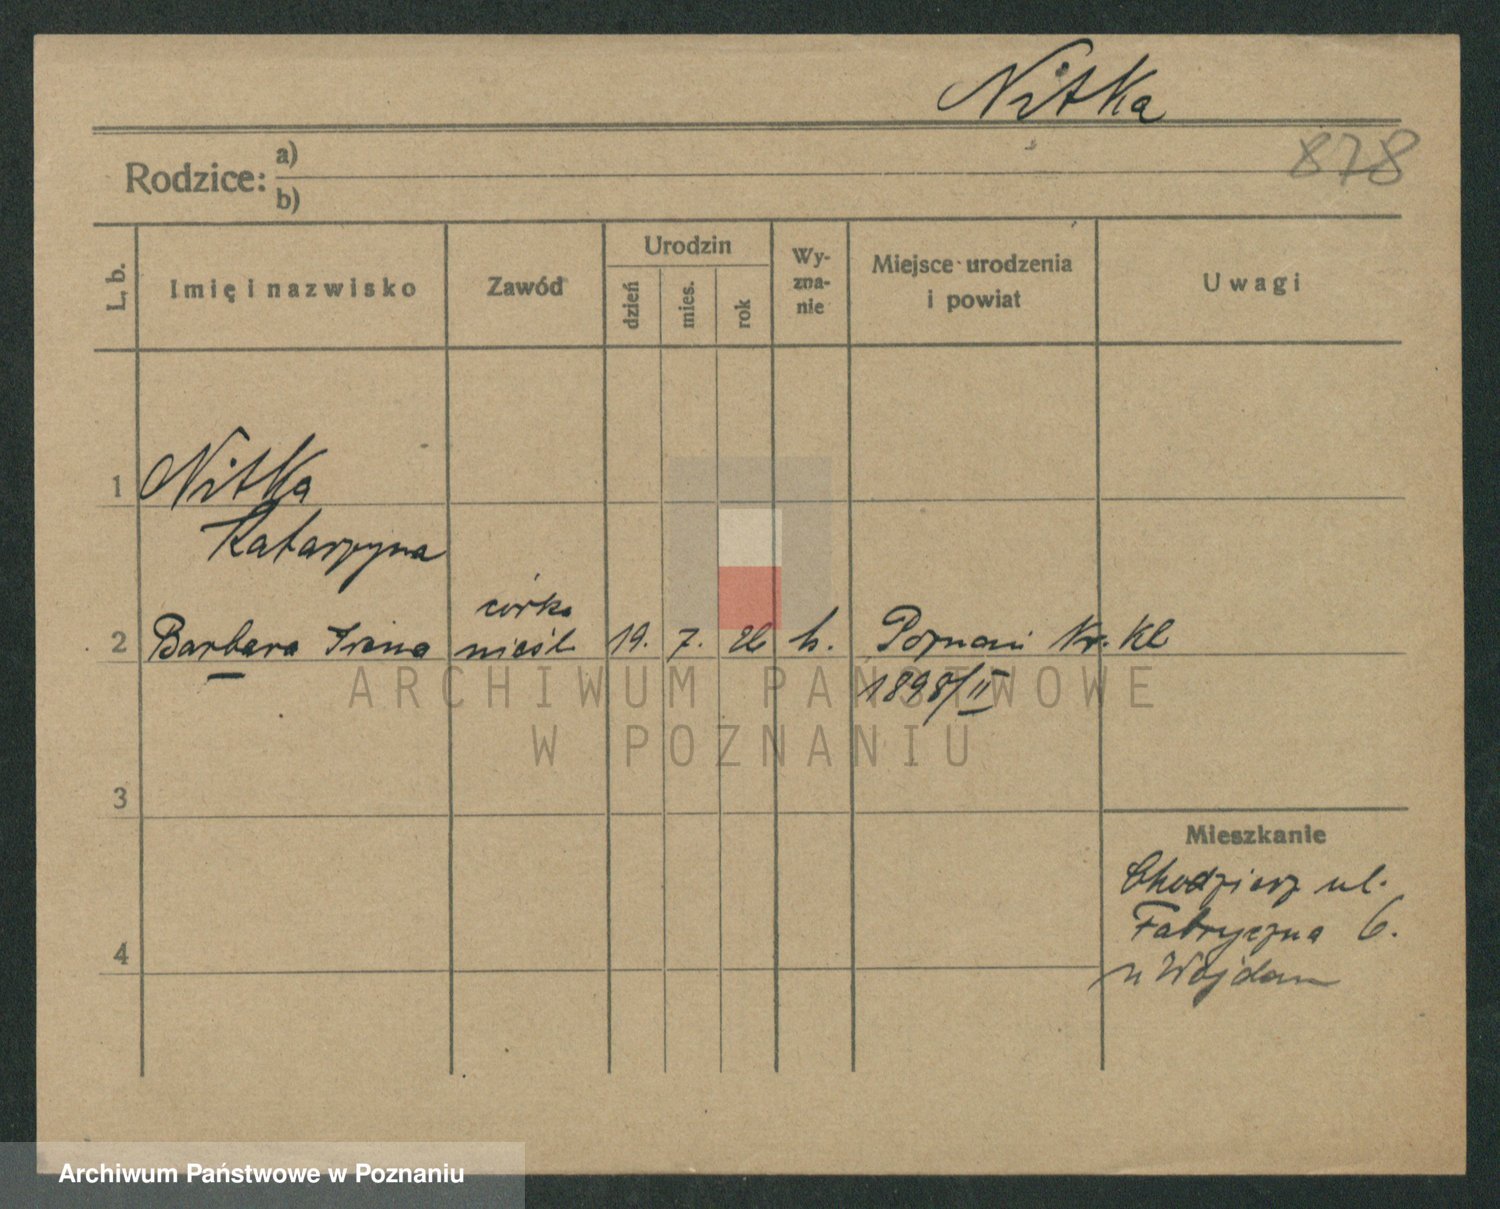 Nitka
878
Rodzice: a)
b)
L. b.
Imię i nazwisko
Zawód
Urodzin
dzień
mies.
rok
Wy-
zna-
nie
Miejsce urodzenia
i powiat
Uwagi
1 Nitka
Katarzyna
córka
2 Barbara Irena nieśl. 19. 7. k. Poznań Nr. Kl
1898/II
ARCHIWUM PAŃSTWOWE
W POZNANIU
3
Mieszkanie
Chodzież ul.
Fabryczna 6.
4
u
Archiwum Państwowe w Poznaniu